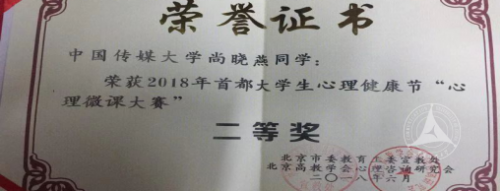 荣誉证书
中国传媒大学尚晓燕同学：
荣获2018年首都大学生心理健康节“心
理微课大赛”
二等奖
北京市委教育工委宣教处
北京高教学会心理咨询研究会
二〇一八年六月